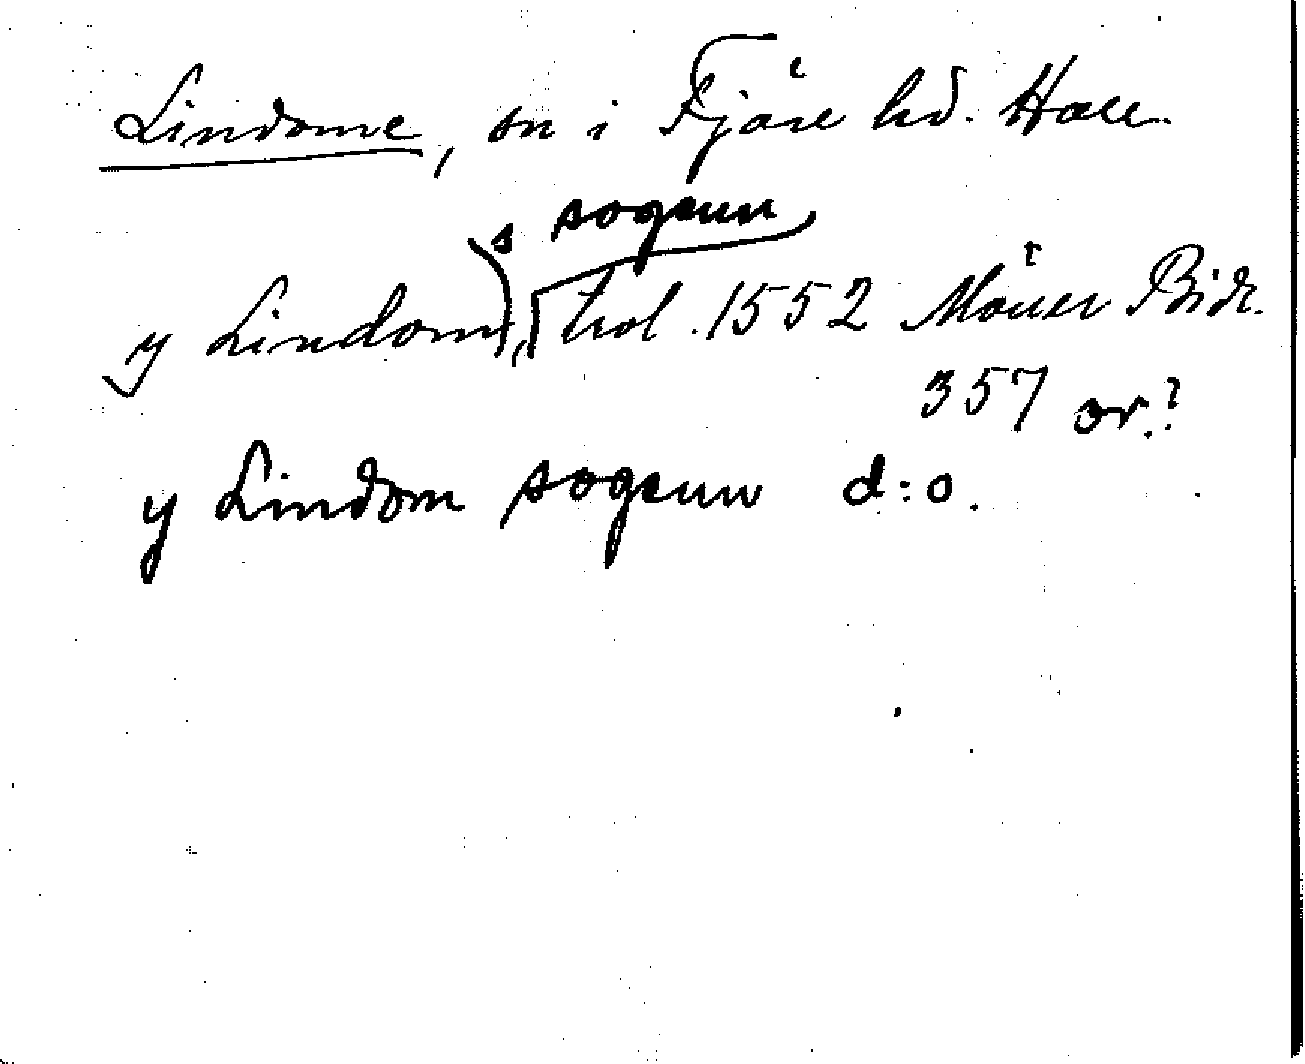 Lindome, sn i Fjäre hd. Hall.
s sogenn
y Lindom, trol. 1552 Måner Bidr.
357 or.?
y Lindom sogenn d:o.